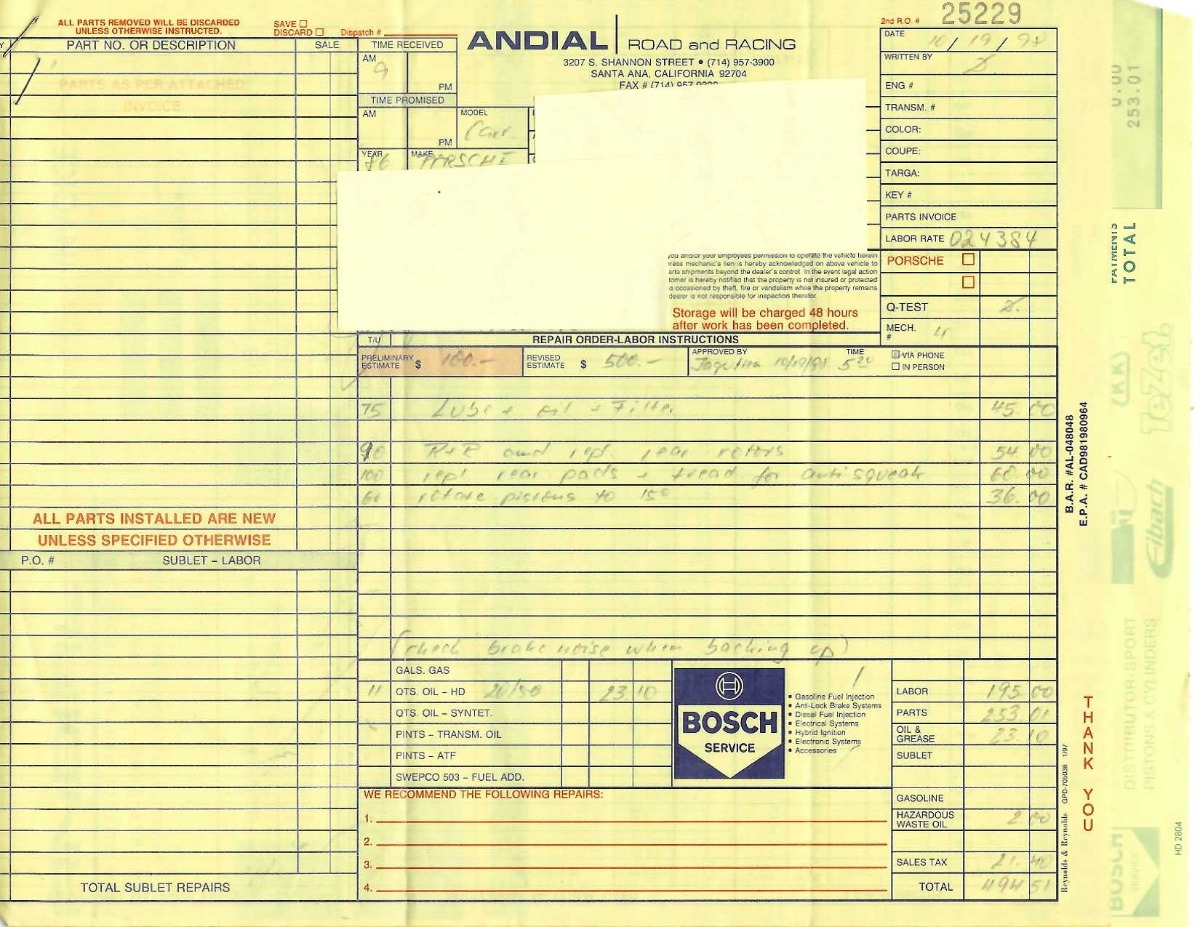 ALL PARTS REMOVED WILL BE DISCARDED
UNLESS OTHERWISE INSTRUCTED.
SAVE
DISCARD
Dispatch #
PART NO. OR DESCRIPTION
SALE
PARTS AS PER ATTACHED
INVOICE
TIME RECEIVED
AM
9
PM
TIME PROMISED
AM
PM
MODEL
Carr.
YEAR
MAKE
PORSCHE
ANDIAL ROAD and RACING
3207 S. SHANNON STREET • (714) 957-3900
SANTA ANA, CALIFORNIA 92704
FAX # (714) 957-
2nd R.O. # 25229
DATE
10/19/98
WRITTEN BY
ENG #
TRANSM. #
COLOR:
COUPE:
TARGA:
KEY #
PARTS INVOICE
LABOR RATE 024384
PORSCHE
Q-TEST
MECH.
#
you and/or your employees permission to operate the vehicle herein
ress mechanic's lien is hereby acknowledged on above vehicle to
arts shipments beyond the dealer's control. In the event legal action
tomer is hereby notified that the property is not insured or protected
is occasioned by theft, fire or vandalism while the property remains
dealer is not responsible for inspection therefor.
Storage will be charged 48 hours
after work has been completed.
T/U
REPAIR ORDER-LABOR INSTRUCTIONS
PRELIMINARY
ESTIMATE $ 100.-
REVISED
ESTIMATE $ 500.-
APPROVED BY
10/19/98
TIME
VIA PHONE
IN PERSON
75 Lube + oil + Filter 45.00
90 R+R and repl. rear rotors 54.00
100 repl rear pads + tread for antisqueak 60.00
60 rotate pistons to 150 36.00
(check brake noise when backing up)
ALL PARTS INSTALLED ARE NEW
UNLESS SPECIFIED OTHERWISE
P.O. #
SUBLET – LABOR
TOTAL SUBLET REPAIRS
GALS. GAS
11 QTS. OIL – HD 20/50 23 10
QTS. OIL – SYNTET.
PINTS – TRANSM. OIL
PINTS – ATF
SWEPCO 503 – FUEL ADD.
BOSCH
SERVICE
• Gasoline Fuel Injection
• Anti-Lock Brake Systems
• Diesel Fuel Injection
• Electrical Systems
• Hybrid Ignition
• Electronic Systems
• Accessories
LABOR 195.00
PARTS 253.01
OIL &
GREASE 23.10
SUBLET
GASOLINE
HAZARDOUS
WASTE OIL 2.00
SALES TAX 21.40
TOTAL 494 51
WE RECOMMEND THE FOLLOWING REPAIRS:
1.
2.
3.
4.
B.A.R. #AL-048048
E.P.A. # CAD981980964
THANK YOU
Reynolds & Reynolds
1/97
0.00
253.01
PAYMENTS
TOTAL
Eibach
DISTRIBUTOR-SPORT
PISTONS & CYLINDERS
BOSCH
SERVICE
HD 2804